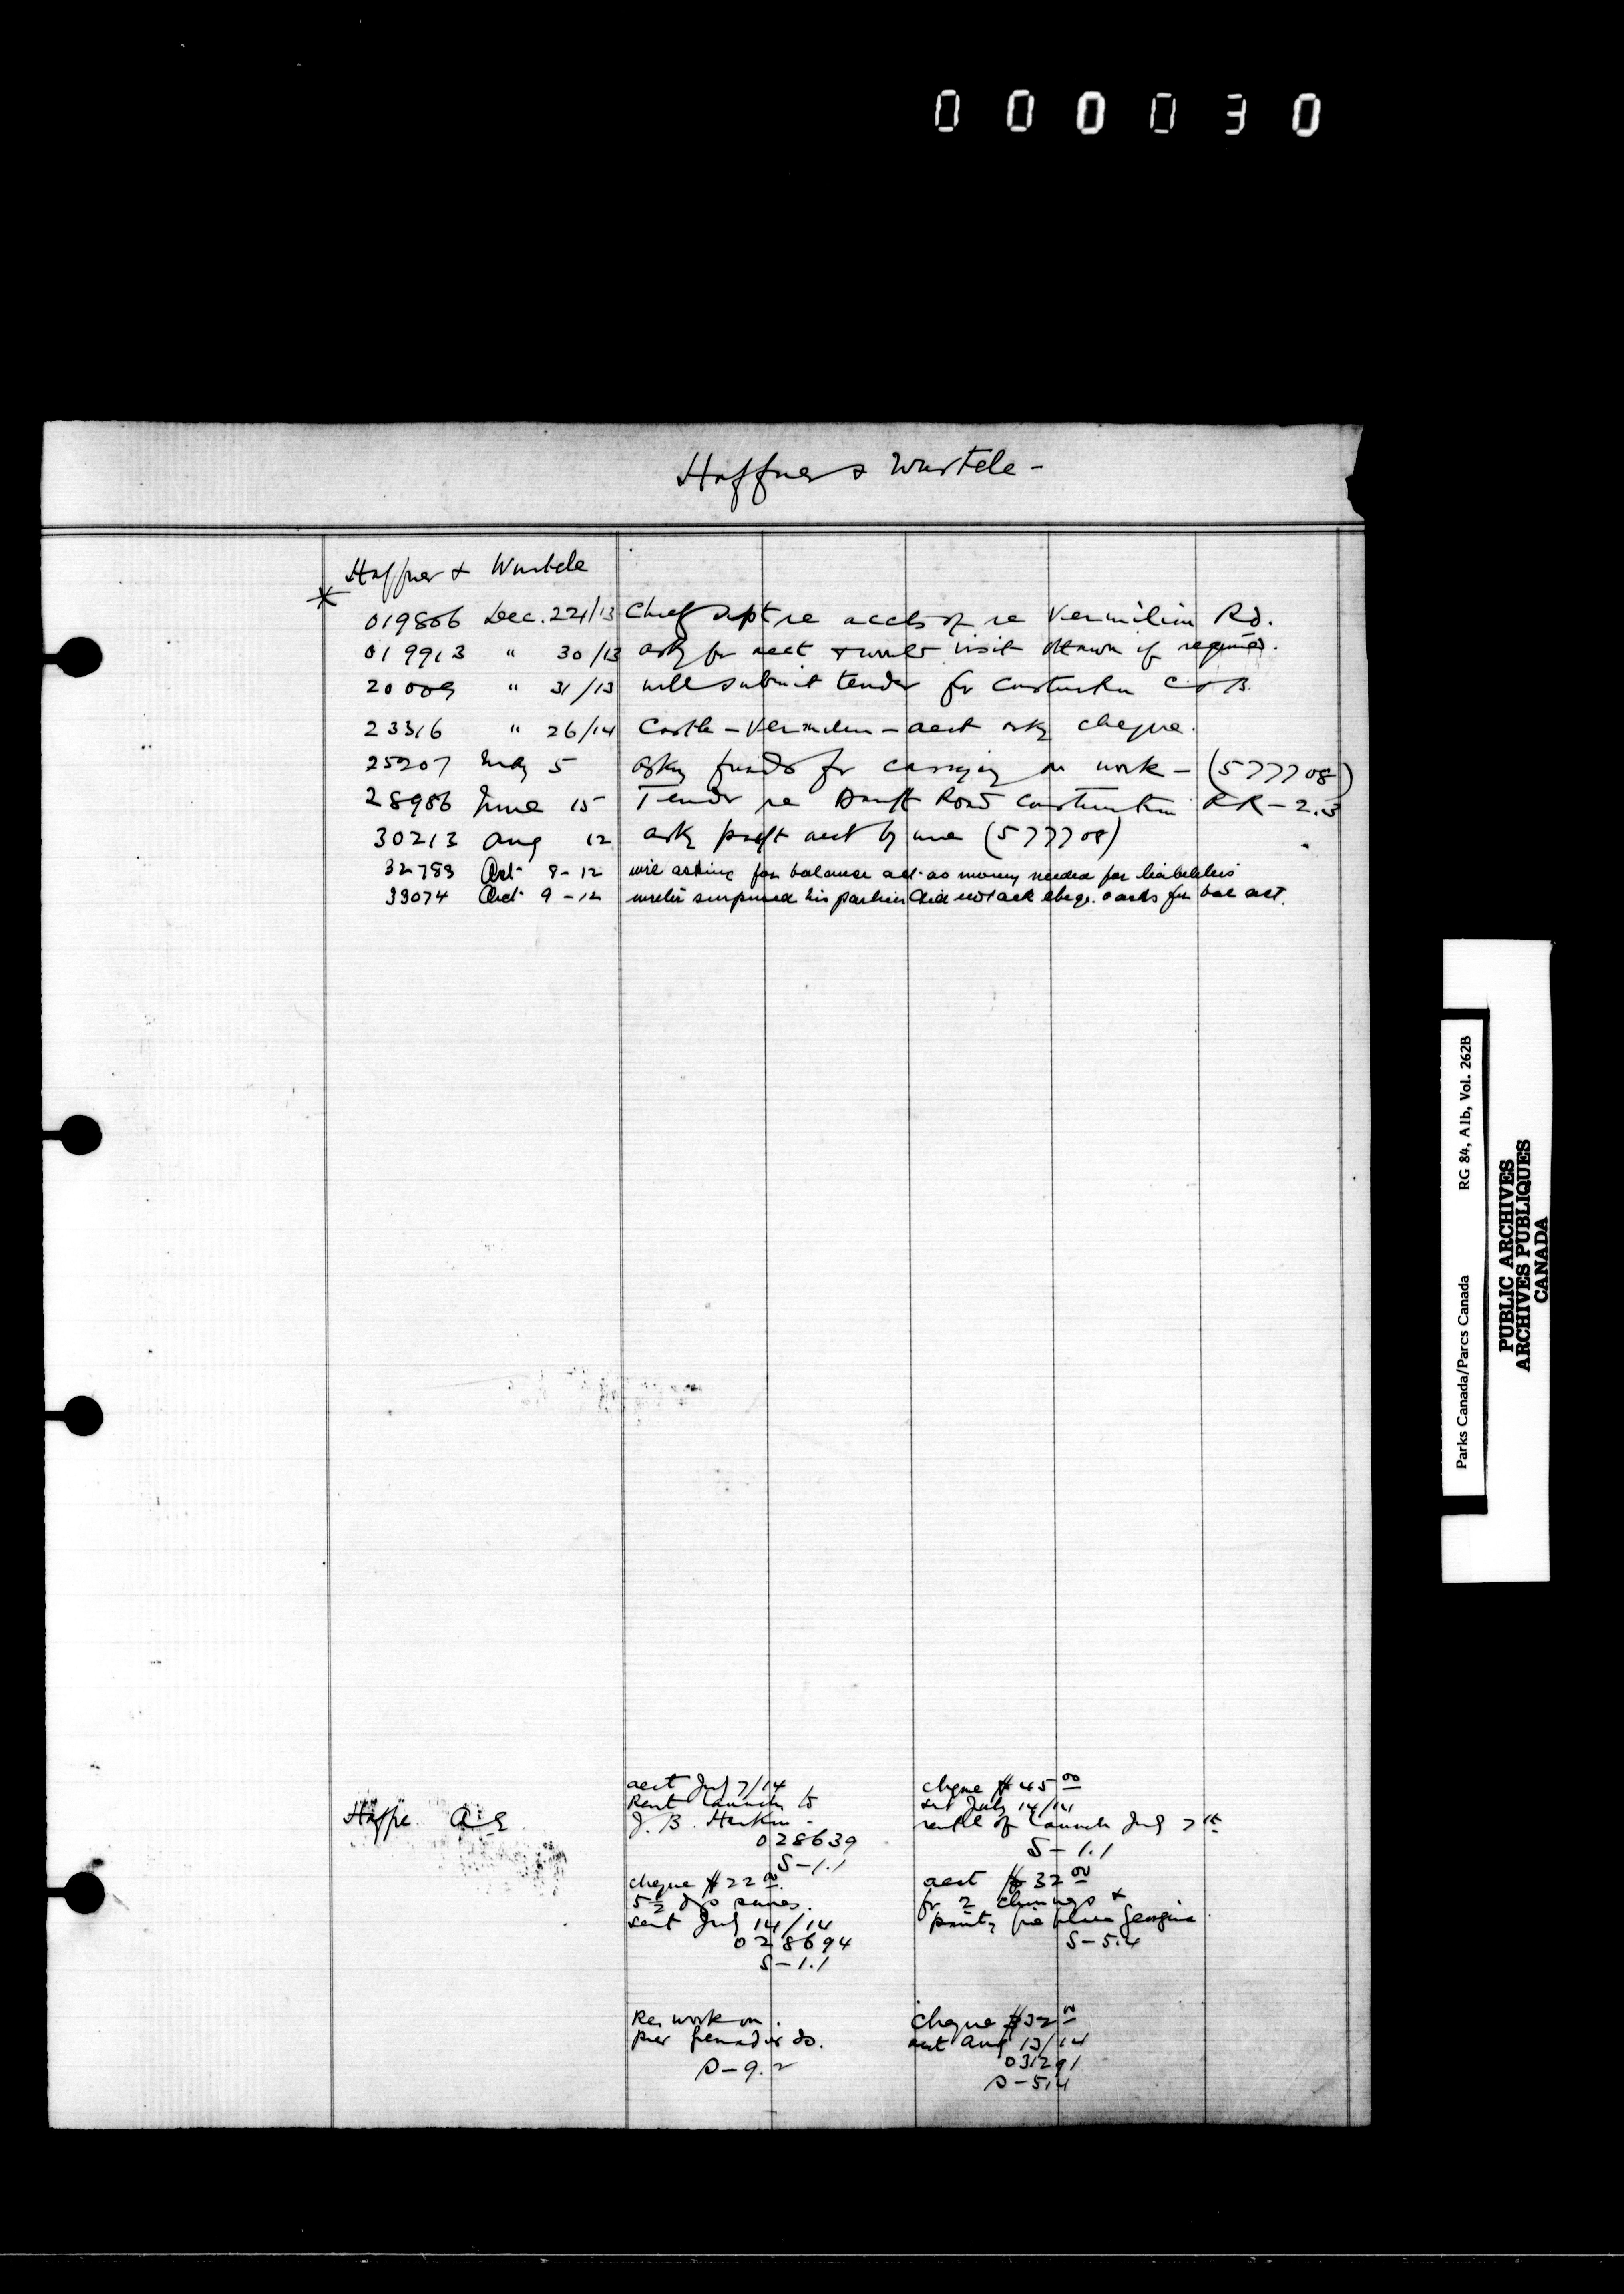 000030
Haffner & Wurtele -
Haffner & Wurtele
019806 Dec. 22/13 Chief Supt re accts of re Vermilion Rd.
019913 " 30/13 askg for acct & would visit Ottawa if required.
20009 " 31/13 will submit tender for Construction C & B.
23316 " 26/14 Castle - Vermilion - acct askg cheque.
25207 May 5 askg funds for carrying on work - (577708)
28986 June 15 Tender re Banff Road Construction RR - 2.3
30213 Aug 12 askg pay't acct by wire (577708)
32783 Oct 8 - 12 wire asking for balance act. as money needed for liabilities
33074 Oct 9 - 12 writer surprised his partner did not ack chege. & asks for bal act.
Haffe A E
acct July 7/14
Rent launch to
J. B. Harkin -
028639
S - 1.1
cheque $45 00
sent July 14/14
rental of launch July 7th
S - 1.1
cheque $22 00.
5½ d/o
sent July 14/14
028694
S - 1.1
acct $32 00
for 2 chimneys &
fire place Georgina
S - 5.4
Re. work on
pier do.
S - 9.2
Cheque $32 00
acct Aug 13/14
031291
S - 5.4
Parks Canada/Parcs Canada RG 84, A1b, Vol. 262B
PUBLIC ARCHIVES
ARCHIVES PUBLIQUES
CANADA